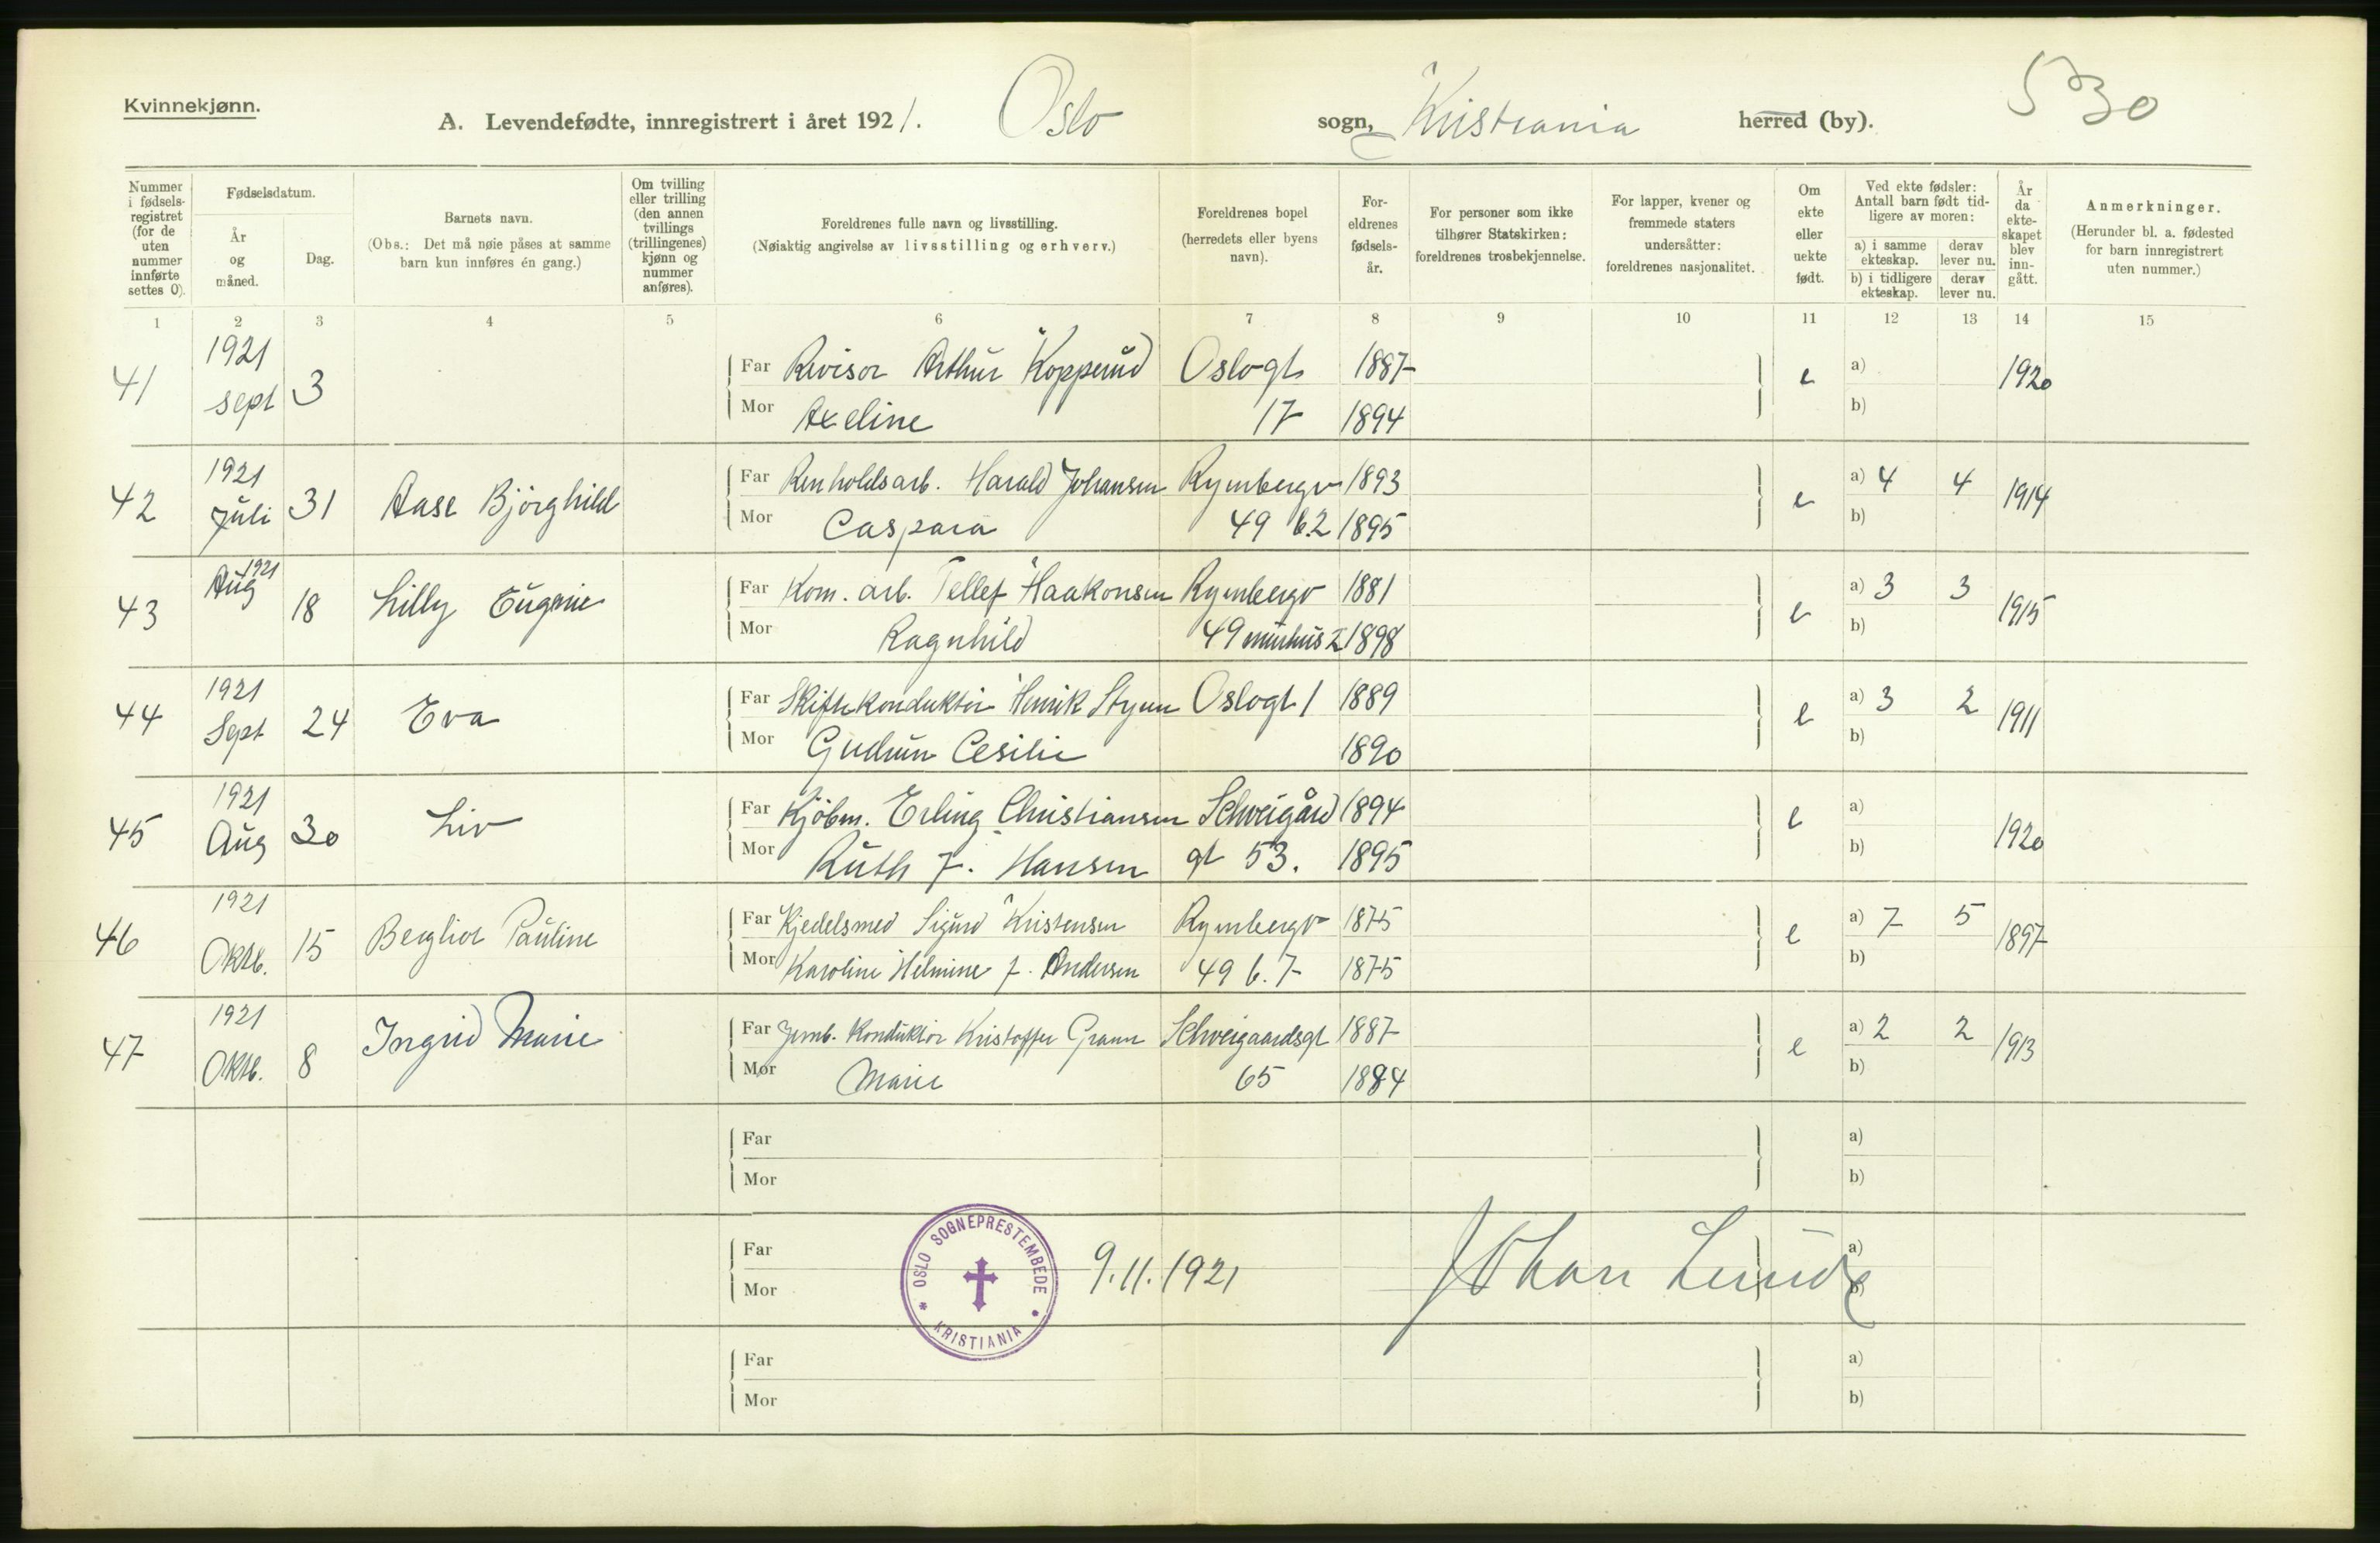 530
Kvinnekjønn.
A. Levendefødte, innregistrert i året 1921. Oslo sogn, Kristiania herred (by).
Nummer i fødsels-registret (for de uten nummer innførte settes 0).
Fødselsdatum.
År og måned.
Dag.
Barnets navn.
(Obs.: Det må nøie påses at samme barn kun innføres én gang.)
Om tvilling eller trilling (den annen tvillings (trillingenes) kjønn og nummer anføres).
Foreldrenes fulle navn og livsstilling.
(Nøiaktig angivelse av livsstilling og erhverv.)
Foreldrenes bopel (herredets eller byens navn).
For-eldrenes fødsels-år.
For personer som ikke tilhører Statskirken: foreldrenes trosbekjennelse.
For lapper, kvener og fremmede staters undersåtter: foreldrenes nasjonalitet.
Om ekte eller uekte født.
Ved ekte fødsler: Antall barn født tid-ligere av moren:
a) i samme ekteskap. derav lever nu.
b) i tidligere ekteskap. derav lever nu.
År da ekte-skapet blev inn-gått.
Anmerkninger.
(Herunder bl. a. fødested for barn innregistrert uten nummer.)
1 2 3 4 5 6 7 8 9 10 11 12 13 14 15
41 1921 sept 3 Far Revisor Arthur Kopperud Oslogt 1887 e a) 1920
Mor Axeline 17 1894 b)
42 1921 Juli 31 Aase Bjørghild Far Renholdsarb. Harald Johansen Rymbergv 1893 e a) 4 4 1914
Mor Caspara 49 b.2 1895 b)
43 Aug 1921 18 Lilly Eugenie Far Kom. arb. Tellef Haakonsen Rymbergv 1881 e a) 3 3 1915
Mor Ragnhild 49 murhus 2 1898 b)
44 1921 Sept 24 Eva Far Skiftekonduktør Henrik Oslogt 1 1889 e a) 3 2 1911
Mor Gudrun Cesilie 1890 b)
45 1921 Aug 30 Liv Far Kjøbm. Erling Christiansen Schweigård 1894 e a) 1920
Mor Ruth f. Hansen gt 53. 1895 b)
46 1921 Oktb. 15 Bergliot Pauline Far Kjedelsmed Sigurd Kristensen Rymbergv 1875 e a) 7 5 1897
Mor Karoline Helmine f. Andersen 49 b. 7 1875 b)
47 1921 Oktb. 8 Ingrid Marie Far Jernb. Konduktør Kristoffer Schweigaardsgt 1887 e a) 2 2 1913
Mor Marie 65 1884 b)
Far a)
Mor b)
Far a)
Mor b)
OSLO SOGNEPRESTEMBEDE * KRISTIANIA *
9.11.1921 Johan Lunde
Far a)
Mor b)